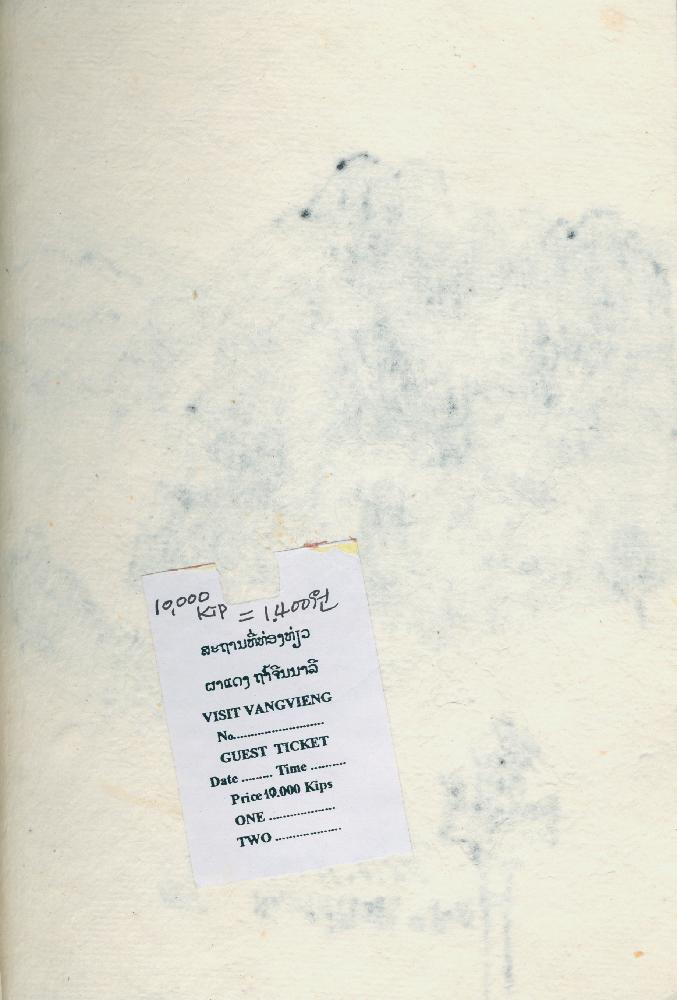 10,000 KIP = 1,400원
ສະຖານທີ່ທ່ອງທ່ຽວ
ຜາແດງ ຖ້ຳຈີນນາລີ
VISIT VANGVIENG
No..........................
GUEST TICKET
Date ........ Time .........
Price 10.000 Kips
ONE ..................
TWO ..................